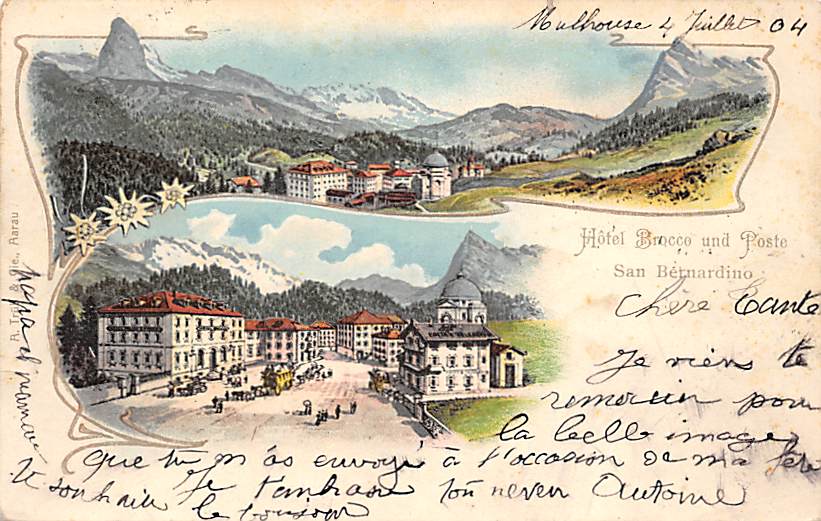 Mulhouse 4 Juillet 04
Hôtel Brocco und Poste
San Bernardino
Chère Tante
Je viens te
remercier pour
la belle image
que tu m'as envoyé à l'occasion de ma fête
Je t'embrasse ton neveu Antoine
papa et maman
te souhaite
le bonjour
& Cie., Aarau